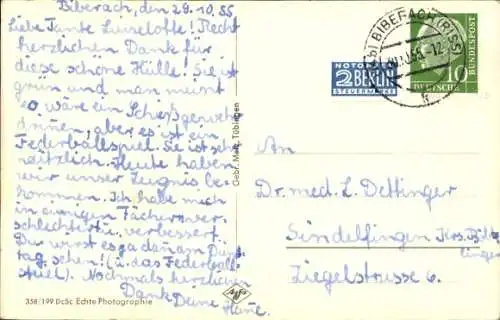 Biberach, den 29.10.55
Liebe Tante Lieselotte! Recht
herzlichen Dank für
diese schöne Hülle! Sie ist
grün und man meint
es wäre ein Schießgewehr
drinnen, aber es ist ein
Federballspiel. Sie ist sehr
nützlich. Heute haben
wir unser Zeugnis be-
kommen. Ich habe mich
in einigen Fächern ver-
schlechtert u. verbessert.
Du wirst es ja dann am
tag sehen! (u. das Federball-
spiel). Nochmals herzlichen
Dank Deine
358/199 Echte Photographie
Gebr. Metz, Tübingen
Agfa
NOTOPFER
2 BERLIN
STEUERMARKE
BIBERACH (RISS)
10
DEUTSCHE
BUNDESPOST
An
Dr. med. L. Dettinger
Sindelfingen Krs. Böb-
lingen
Ziegelstrasse 6.